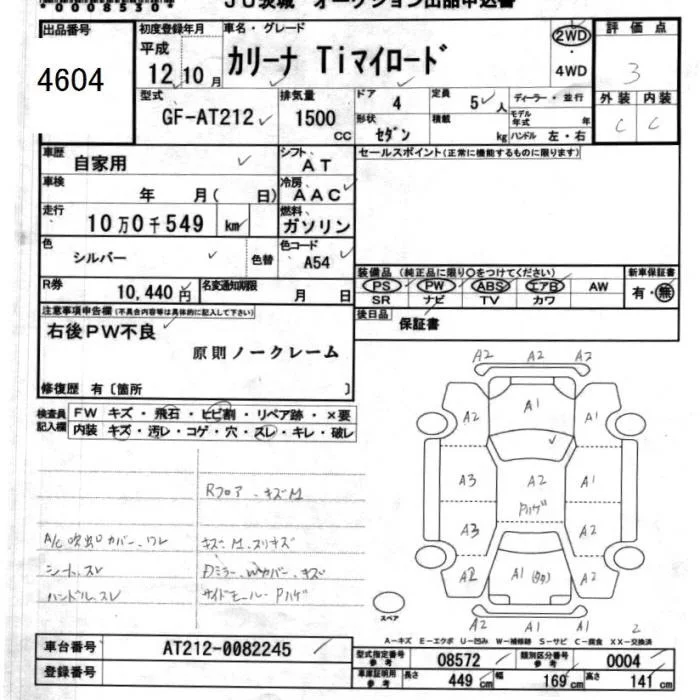 0085304
JU茨城 オークション出品申込書
出品番号
4604
初度登録年月
平成
12年10月
車名・グレード
カリーナ Tiマイロード
2WD
・
4WD
評価点
3
外装 内装
C C
型式
GF-AT212
排気量
1500
CC
ドア
4
定員
5人
ディーラー・並行
形状
セダン
積載
kg
モデル年式 年
ハンドル 左・右
車歴
自家用
シフト
AT
セールスポイント(正常に機能するものに限ります)
車検
年 月( 日)
冷房
AAC
走行
10万0千549 km
燃料
ガソリン
色
シルバー
色替
色コード
A54
装備品(純正品に限り○をつけてください)
新車保証書
PS PW ABS エアB AW
SR ナビ TV カワ
有・無
R券
10,440円
名変通知期限
月 日
後日品
保証書
注意事項申告欄(不具合内容等は具体的に記入して下さい)
右後PW不良
原則ノークレーム
修復歴 有〔箇所 〕
検査員記入欄
FW キズ・飛石・ヒビ割・リペア跡・×要
内装 キズ・汚レ・コゲ・穴・スレ・キレ・破レ
Rフロア・キズM
A/C吹出口カバー・ワレ
キズM・スリキズ
シート・スレ
Dミラー・Wカバー・キズ
ハンドル・スレ
サイドモール・Pハゲ
A2 A2 A2
A2 A1 A1
A3 A2 A1
Pハゲ
A3 A2
A2 A1 A2
A1 A1 A1
2
スペア
A-キズ E-エクボ U-凹み W-補修跡 S-サビ C-腐食 XX-交換済
車台番号
AT212-0082245
登録番号
型式指定番号
参考
08572
類別区分番号
参考
0004
車庫証明用
参考
長さ 449cm
幅 169cm
高さ 141cm